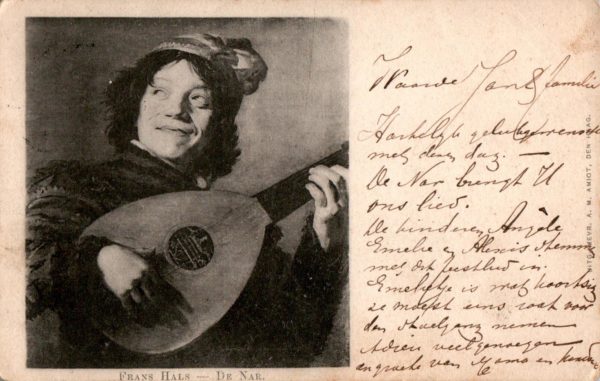 Waarde Jan & familie
Hartelijk gelukgewenscht
met dezen dag. —
De Nar brengt U
ons lied.
De kinderen Angèle
Emelie en Alexis stemmen
met dit feestlied in.
Emelietje is wat koortsig
ze moest eens rust voor
den nemen
Adieu veel genoegen
en groete van Mama en
FRANS HALS — DE NAR.
UITG. MEVR. A. M. AMIOT, DEN HAAG.